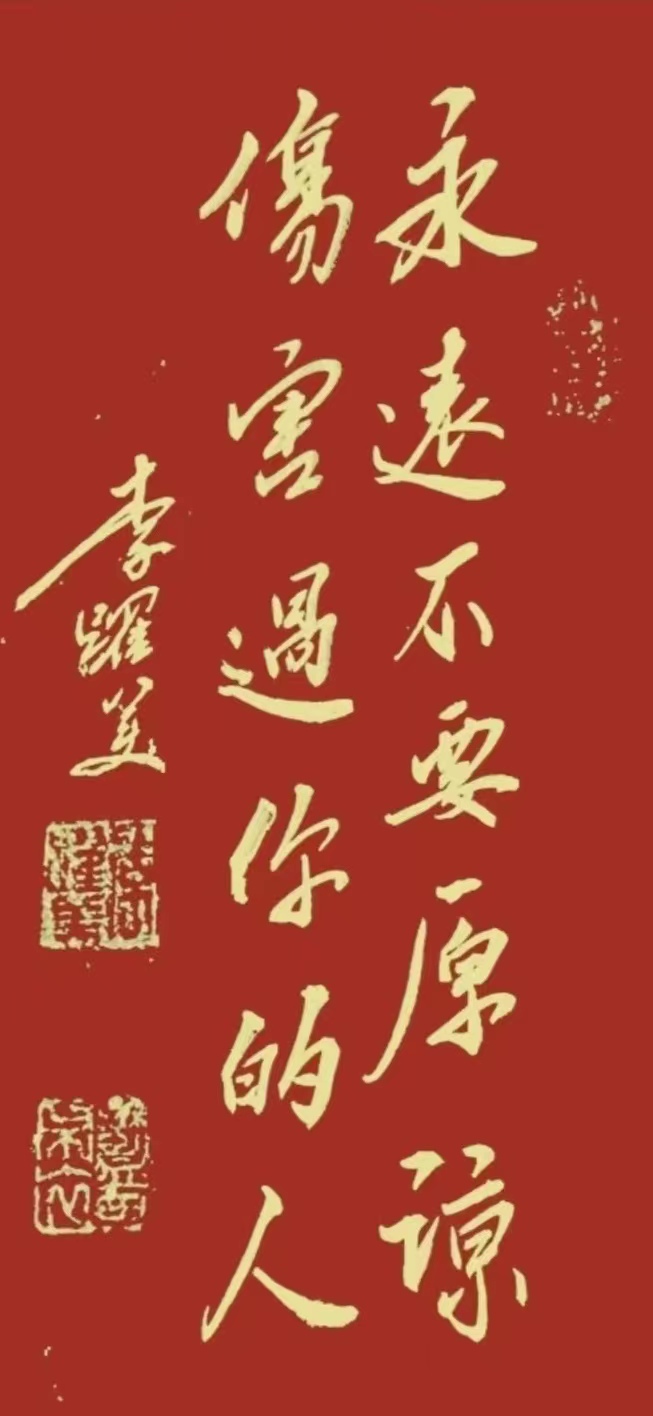 永遠不要原諒
傷害過你的人
李躍美